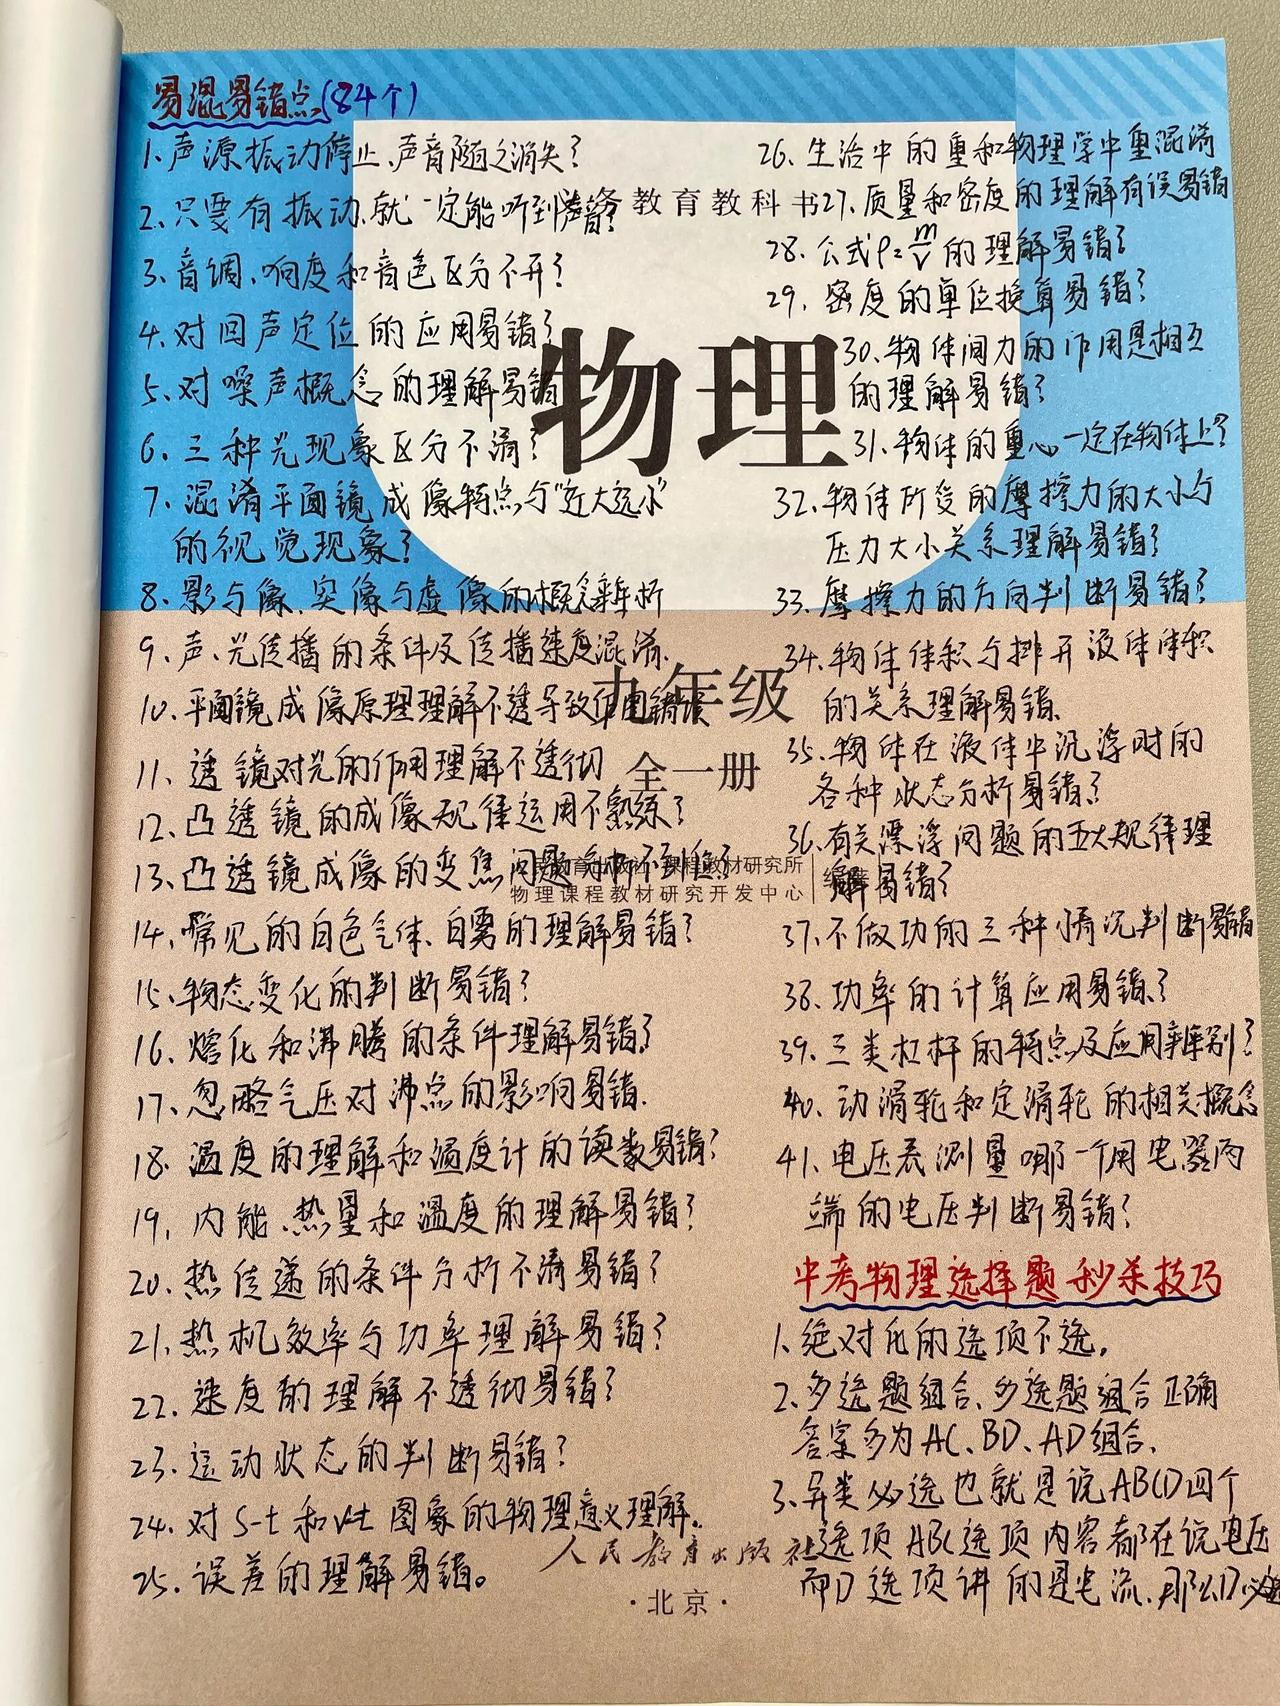 易混易错点(84个)
1.声源振动停止、声音随之消失?
2.只要有振动.就一定能听到声音?
3.音调、响度和音色区分不开?
4.对回声定位的应用易错?
5.对噪声概念的理解易错
6.三种光现象区分不清?
7.混淆平面镜成像特点与“近大远小”
的视觉现象?
8.影与像、实像与虚像的概念辨析
9.声、光传播的条件及传播速度混淆.
10.平面镜成像原理理解不透导致作图错误
11.透镜对光的作用理解不透彻
12.凸透镜的成像规律运用不熟练?
13.凸透镜成像的变焦问题分析不到位?
14.常见的白色气体、白雾的理解易错?
15.物态变化的判断易错?
16.熔化和沸腾的条件理解易错?
17.忽略气压对沸点的影响易错.
18.温度的理解和温度计的读数易错?
19.内能、热量和温度的理解易错?
20.热传递的条件分析不清易错?
21.热机效率与功率理解易错?
22.速度的理解不透彻易错?
23.运动状态的判断易错?
24.对S-t和v-t图象的物理意义理解.
25.误差的理解易错。
义务教育教科书
物理
九年级
全一册
人民教育出版社 课程教材研究所
物理课程教材研究开发中心
编著
人民教育出版社
·北京·
26.生活中的重和物理学中重混淆
27.质量和密度的理解有误易错
28.公式ρ=m/V的理解易错?
29.密度的单位换算易错?
30.物体间力的作用是相互
的理解易错?
31.物体的重心一定在物体上?
32.物体所受的摩擦力的大小与
压力大小关系理解易错?
33.摩擦力的方向判断易错?
34.物体体积与排开液体体积
的关系理解易错.
35.物体在液体中沉浮时的
各种状态分析易错?
36.有关漂浮问题的五大规律理
解易错?
37.不做功的三种情况判断易错
38.功率的计算应用易错?
39.三类杠杆的特点及应用辨别?
40.动滑轮和定滑轮的相关概念
41.电压表测量哪一个用电器两
端的电压判断易错?
中考物理选择题秒杀技巧
1.绝对化的选项不选.
2.多选题组合、多选题组合正确
答案多为AC、BD、AD组合.
3.异类必选也就是说ABCD四个
选项ABC选项内容都在说电压
而D选项讲的是电流.那么D必选